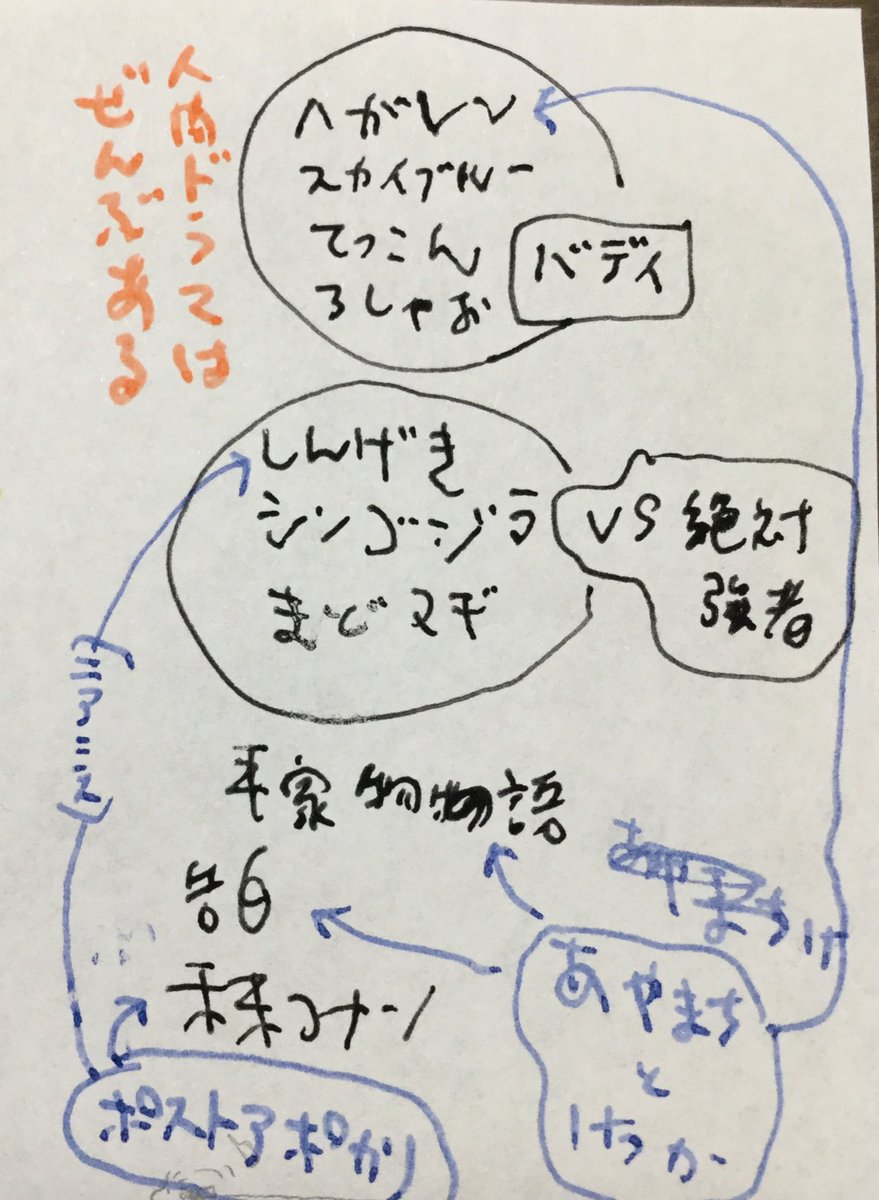 人間ドラマは
ぜんぶある
ハガレン
スカイブルー
てっこん
ろしゃお
バディ
しんげき
シンゴジラ
まどマギ
VS 絶対
強者
平家物物語
告白
未来コナン
あやまち
と
けっか
ポストアポカリ